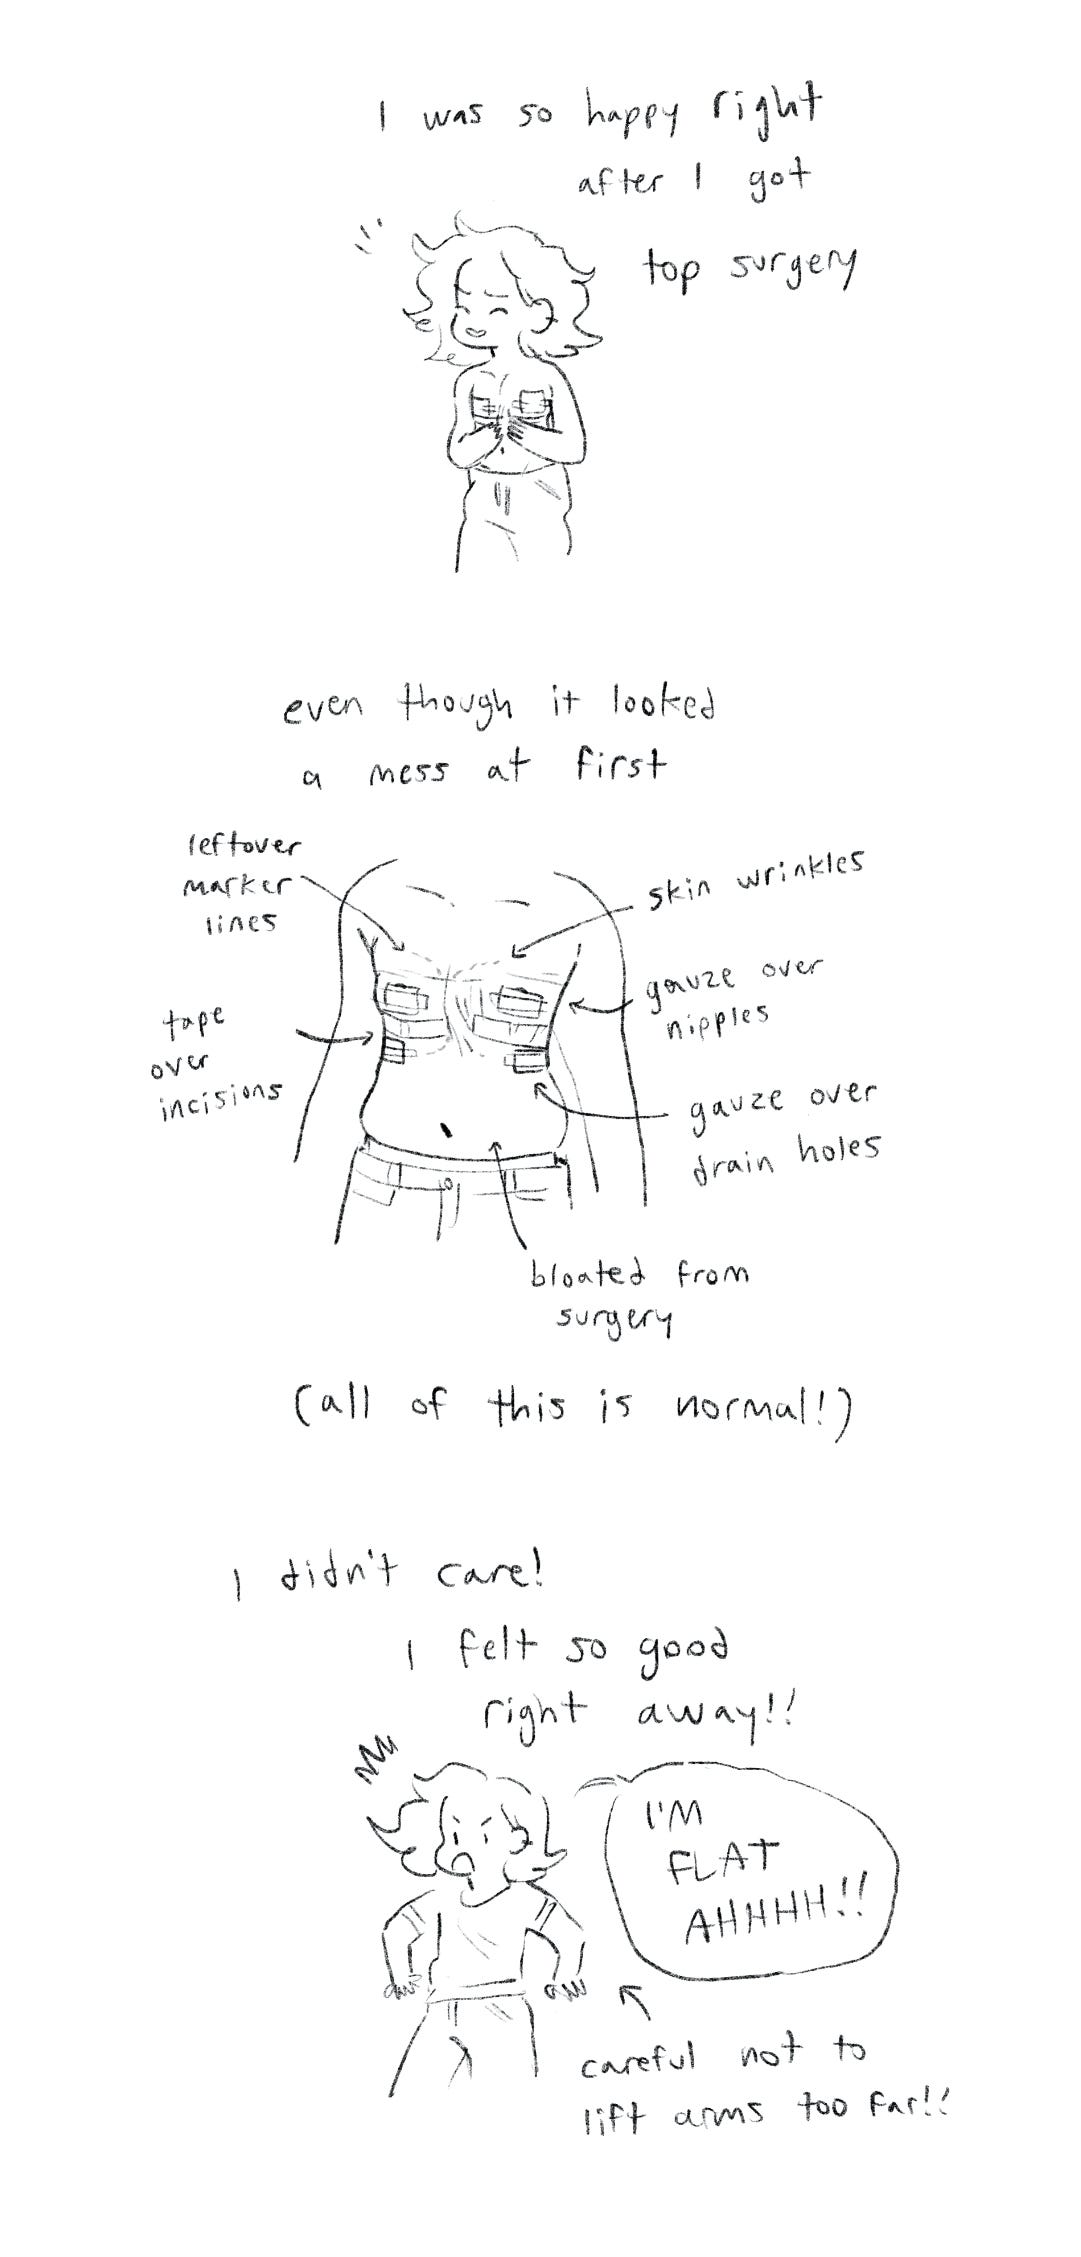 I was so happy right
after I got
top surgery
even though it looked
a mess at first
leftover
marker
lines
skin wrinkles
gauze over
nipples
tape
over
incisions
gauze over
drain holes
bloated from
surgery
(all of this is normal!)
I didn't care!
I felt so good
right away!!
I'M
FLAT
AHHHH!!
careful not to
lift arms too far!!